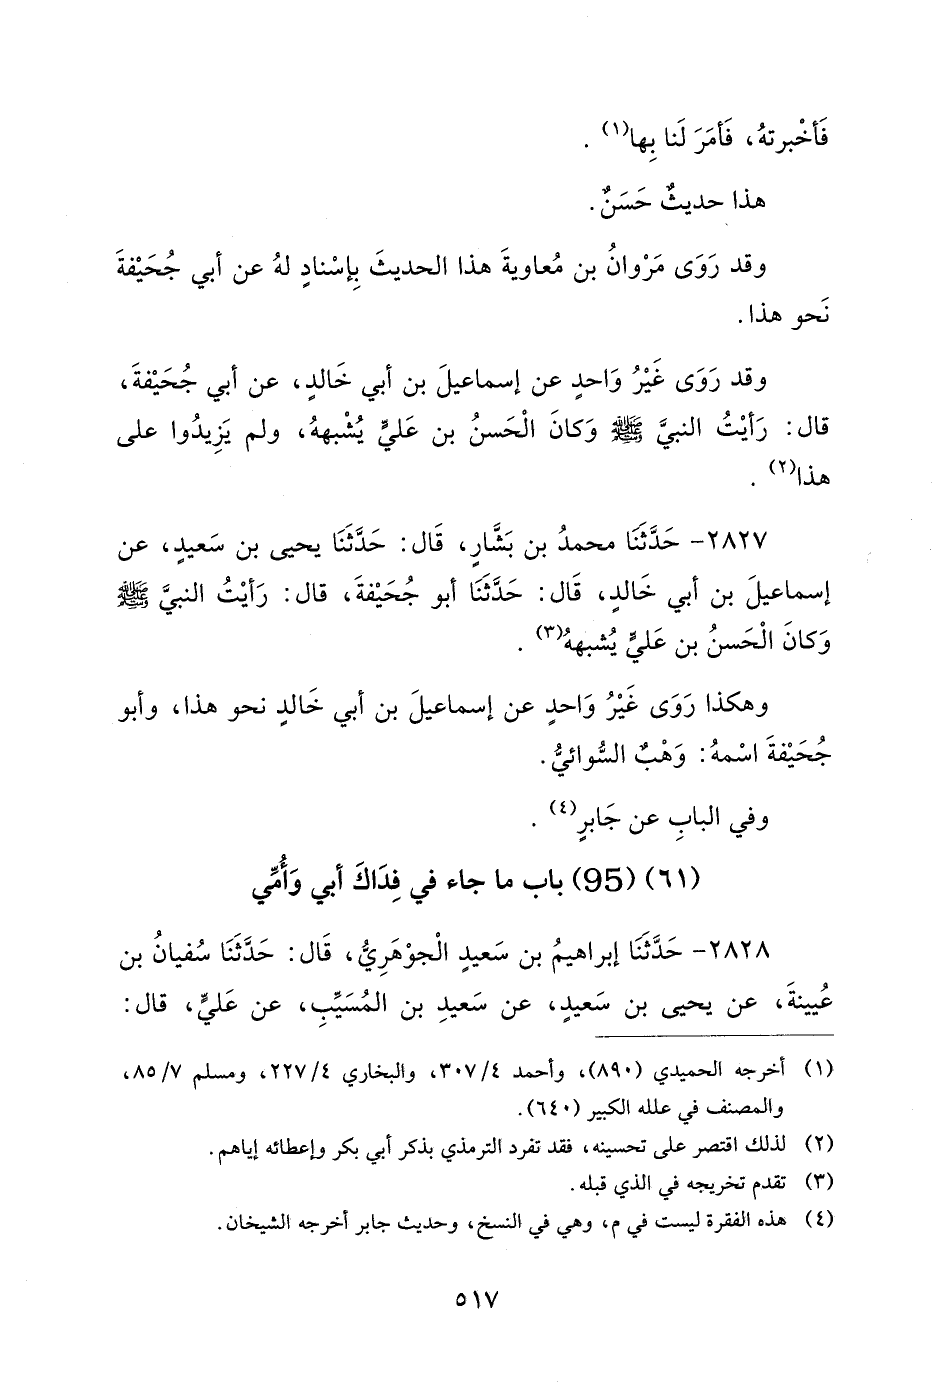 فَأخْبرتهُ، فَأمَرَ لَنا بِها(١) .
هذا حديثٌ حَسَنٌ.
وقد رَوَى مَرْوانُ بن مُعاويةَ هذا الحديثَ بِإسْنادٍ لهُ عن أبي جُحَيْفةَ
نَحو هذا.
وقد رَوَى غَيْرُ وَاحدٍ عن إسماعيلَ بن أبي خَالدٍ، عن أبي جُحَيْفةَ،
قال: رَأيْتُ النبيَّ ﷺ وَكانَ الْحَسنُ بن عَليٍّ يُشْبههُ، ولم يَزِيدُوا على
هذا(٢) .
٢٨٢٧- حَدَّثَنَا محمدُ بن بَشَّارٍ، قَال: حَدَّثَنَا يحيى بن سَعيدٍ، عن
إسماعيلَ بن أبي خَالدٍ، قَال: حَدَّثَنَا أبو جُحَيْفةَ، قال: رَأيْتُ النبيَّ ﷺ
وَكانَ الْحَسنُ بن عَليٍّ يُشبههُ(٣) .
وهكذا رَوَى غَيْرُ وَاحدٍ عن إسماعيلَ بن أبي خَالدٍ نحو هذا، وأبو
جُحَيْفةَ اسْمهُ: وَهْبٌ السُّوائيُّ.
وفي البابِ عن جَابرٍ(٤) .
(٦١) (95) باب ما جاء في فِدَاكَ أبي وَأُمِّي
٢٨٢٨- حَدَّثَنَا إبراهيمُ بن سَعيدٍ الْجوْهَرِيُّ، قَال: حَدَّثَنَا سُفيانُ بن
عُيينةَ، عن يحيى بن سَعيدٍ، عن سَعيدِ بن المُسَيِّبِ، عن عَليٍّ، قال:
(١) أخرجه الحميدي (٨٩٠)، وأحمد ٣٠٧/٤، والبخاري ٢٢٧/٤، ومسلم ٨٥/٧،
والمصنف في علله الكبير (٦٤٠).
(٢) لذلك اقتصر على تحسينه، فقد تفرد الترمذي بذكر أبي بكر وإعطائه إياهم.
(٣) تقدم تخريجه في الذي قبله.
(٤) هذه الفقرة ليست في م، وهي في النسخ، وحديث جابر أخرجه الشيخان.
٥١٧